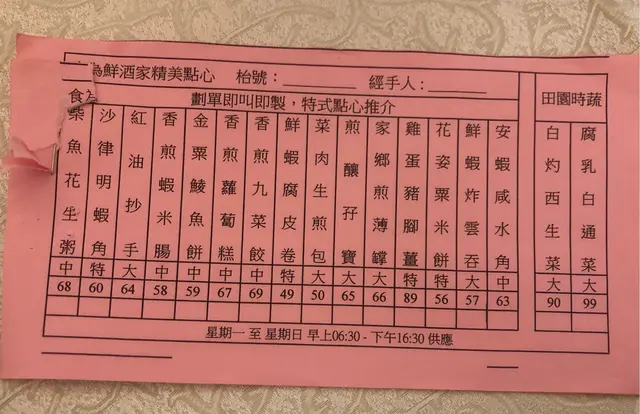 為鮮酒家精美點心 枱號：
經手人：
食
劃單即叫即製，特式點心推介
田園時蔬
柴魚花生粥
沙律明蝦角
紅油抄手
香煎蝦米腸
金粟鯪魚餅
香煎蘿蔔糕
香煎九菜餃
鮮蝦腐皮卷
菜肉生煎包
煎釀孖寶
家鄉煎薄罉
雞蛋豬腳薑
花姿粟米餅
鮮蝦炸雲吞
安蝦咸水角
白灼西生菜
腐乳白通菜
中 特 大 中 中 中 中 特 大 大 大 特 特 大 中 大 大
68 60 64 58 59 67 69 49 50 65 66 89 56 57 63 90 99
星期一 至 星期日 早上06:30 - 下午16:30 供應